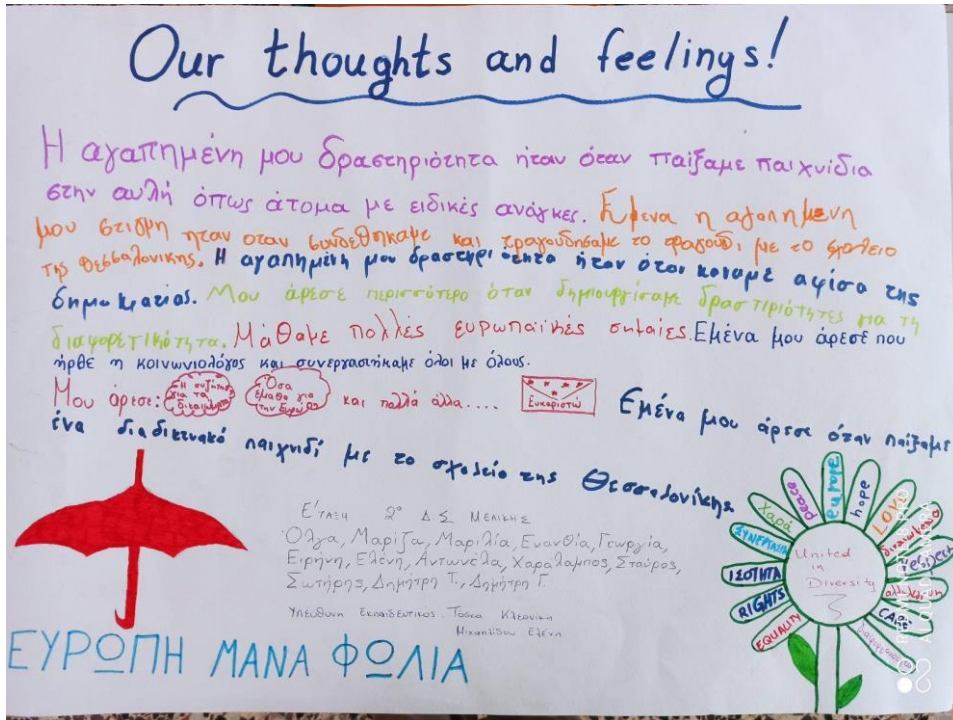 Our thoughts and feelings!
Η αγαπημένη μου δραστηριότητα ήταν όταν παίξαμε παιχνίδια
στην αυλή όπως άτομα με ειδικές ανάγκες. Εμενα η αγαπημενη
μου στιγμη ηταν οταν συνδεθηκαμε και τραγουδησαμε το τραγουδι με το σχολειο
της Θεσσαλονικης. Η αγαπημένη μου δραστηριότητα ήταν όταν κάναμε αφίσα της
δημοκρατίας. Μου άρεσε περισσότερο όταν δημιουργίσαμε δραστιριότητες για τη
διαφορετικότητα. Μάθαμε πολλές ευρωπαϊκές σημαίες. Εμένα μου άρεσε που
ήρθε η κοινωνιολόγος και συνεργαστήκαμε όλοι με όλους.
Μου άρεσε: Η συζήτηση για τα δικαιώματα Όσα έμαθα για την Ευρώπη και πολλά άλλα.... Ευχαριστώ Εμένα μου άρεσε όταν παίξαμε
ένα διαδικτυακό παιχνίδι με το σχολείο της Θεσσαλονίκης
Ε' ΤΑΞΗ 2ο Δ.Σ ΜΕΛΙΚΗΣ
Όλγα, Μαρίζα, Μαριλία, Ευανθία, Γεωργία,
Ειρήνη, Ελένη, Αντωνέλα, Χαράλαμπος, Σταύρος,
Σωτήρης, Δημήτρη Τ., Δημήτρη Γ.
Υπεύθυνη Εκπαιδευτικός Τόσκα Κλεονίκη
Μιχαηλίδου Ελένη
ΕΥΡΩΠΗ ΜΑΝΑ ΦΩΛΙΑ
EQUALITY
RIGHTS
ΙΣΟΤΗΤΑ
ΣΥΝΕΡΓΑΣΙΑ
Χαρά
peace
europe
hope
LOVE
δικαιωματα
respect
αλληλεγγύη
CARE
United
in
Diversity